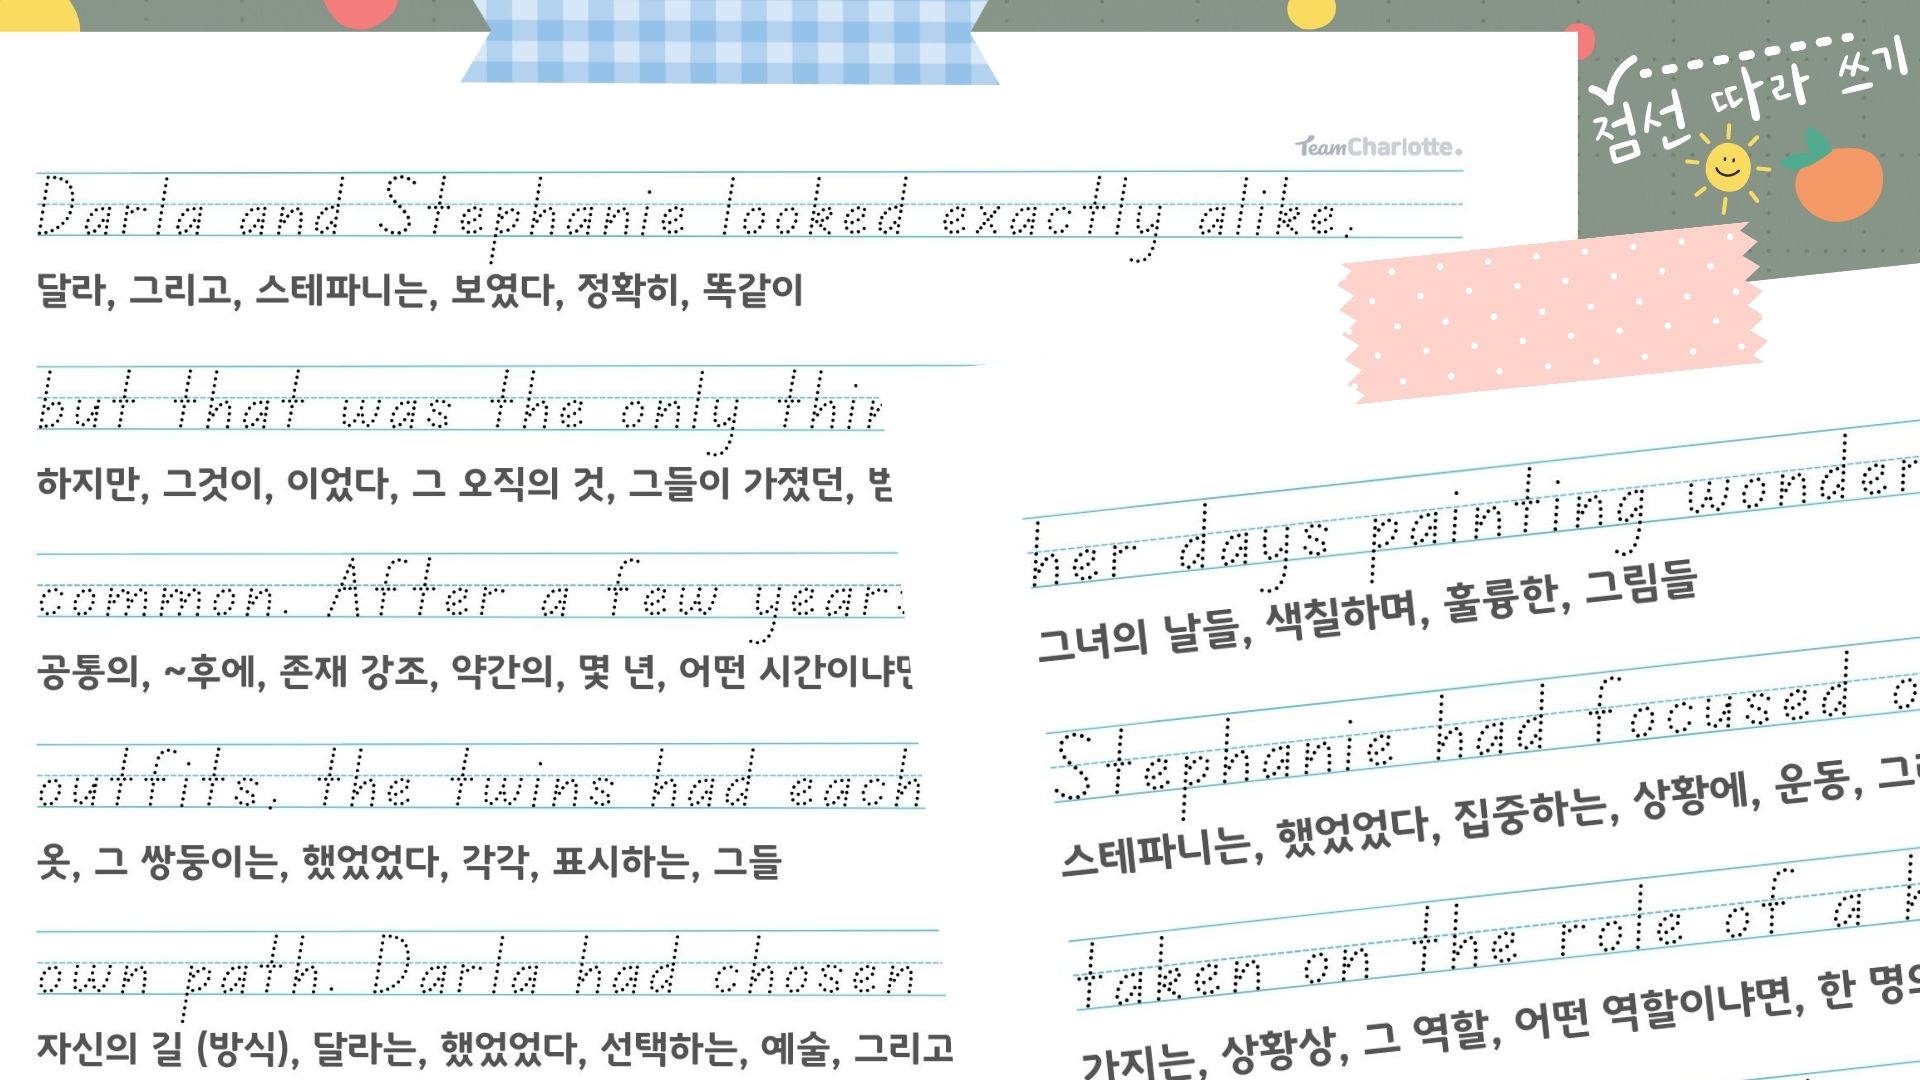 점선 따라 쓰기
TeamCharlotte.
Darla and Stephanie looked exactly alike.
달라, 그리고, 스테파니는, 보였다, 정확히, 똑같이
but that was the only
하지만, 그것이, 이었다, 그 오직의 것, 그들이 가졌던,
common. After a few
공통의, ~후에, 존재 강조, 약간의, 몇 년, 어떤
outfits, the twins had each
옷, 그 쌍둥이는, 했었었다, 각각, 표시하는, 그들
own path. Darla had chosen
자신의 길 (방식), 달라는, 했었었다, 선택하는, 예술, 그리고
her days painting
그녀의 날들, 색칠하며, 훌륭한, 그림들
Stephanie had focused
스테파니는, 했었었다, 집중하는, 상황에, 운동,
taken on the role of a
가지는, 상황상, 그 역할, 어떤 역할이냐면, 한